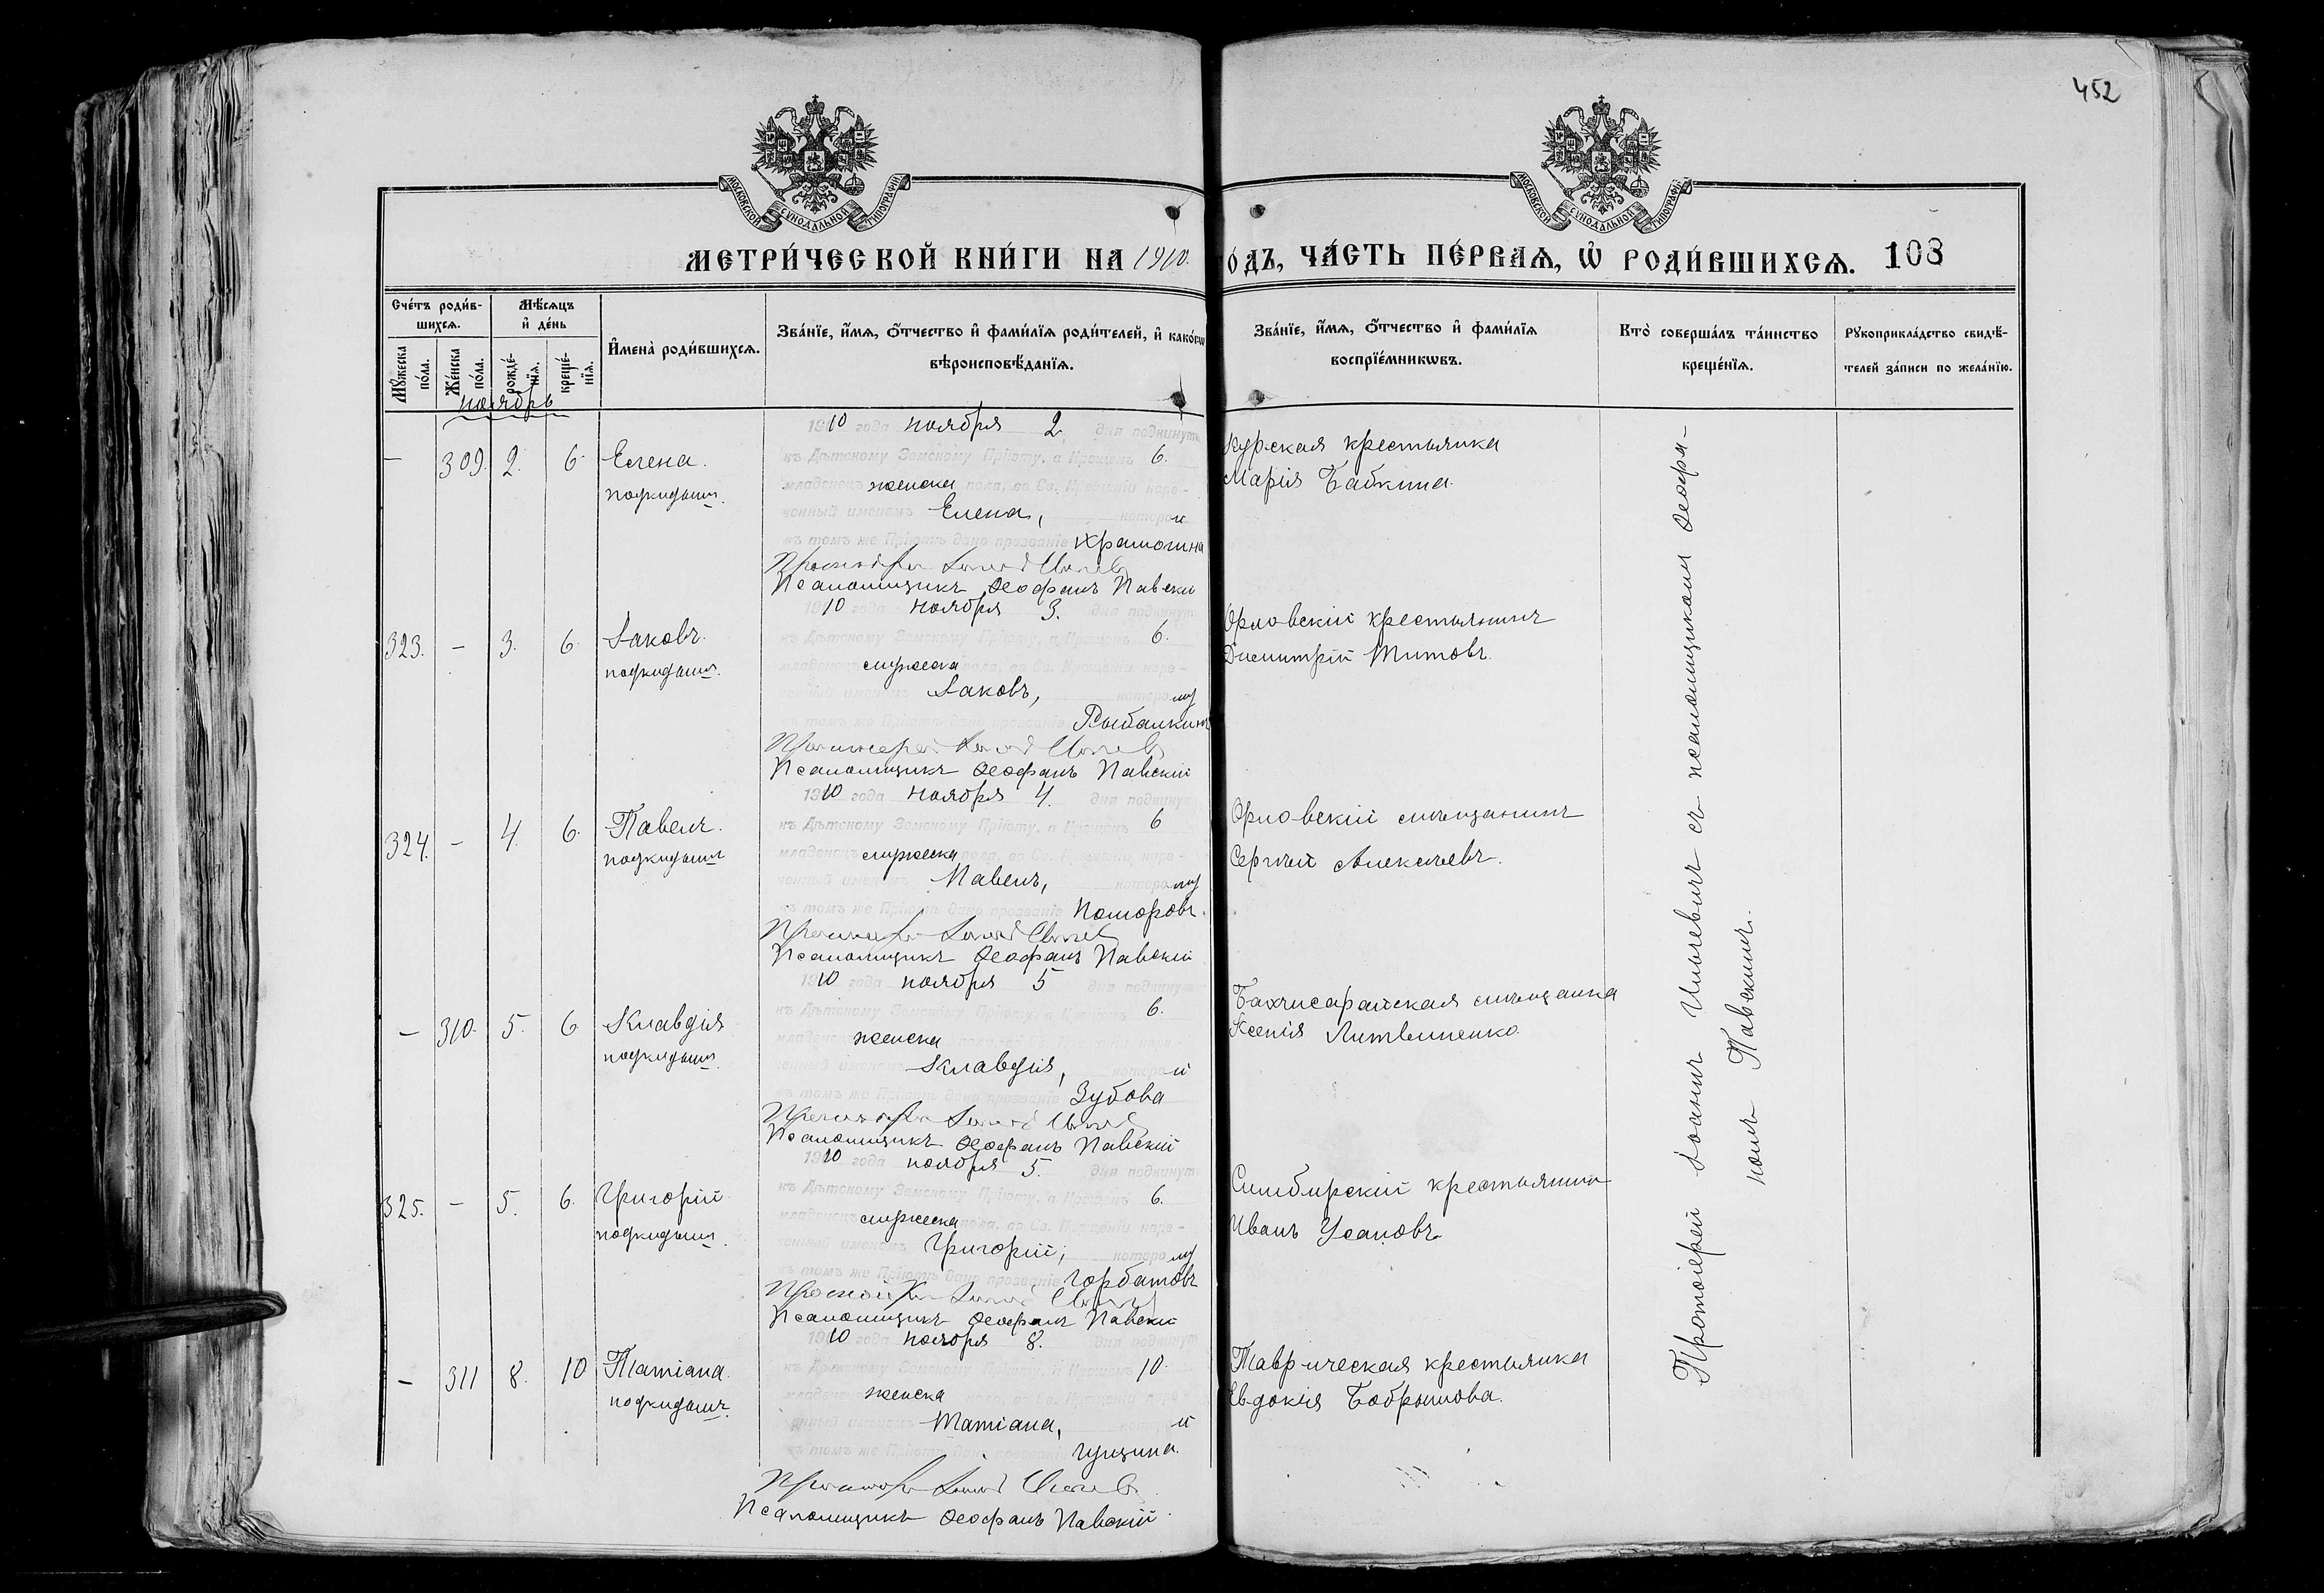 452
МОСКОВСКОЙ СУНОДАЛЬНОЙ ТИПОГРАФІИ
МОСКОВСКОЙ СУНОДАЛЬНОЙ ТИПОГРАФІИ
МЕТРИ́ЧЕСКОЙ КНИ́ГИ НА 1910. О́ДЪ, ЧА́СТЬ ПЕ́РВАѦ, Ѽ РОДИ́ВШИХСѦ. 108
Сче́тъ роди́в-
шихсѧ.
Мѣ́сѧцъ
и҆ де́нь
Мꙋ́жеска
по́ла.
Же́нска
по́ла.
рожде́-
нїѧ.
креще́-
нїѧ.
И҆мена̀ роди́вшихсѧ.
Зва́нїе, и҆́мѧ, ѻ҆́тчество и҆ фами́лїѧ роди́телей, и҆ како́гѡ
вѣроисповѣ́данїѧ.
Зва́нїе, и҆́мѧ, ѻ҆́тчество и҆ фами́лїѧ
воспрїе́мникѡвъ.
Кто̀ соверша́лъ та́инство
креще́нїѧ.
Рꙋкоприкла́дство свидѣ́-
телей за́писи по жела́нїю.
ноябрь
— 309. 2. 6. Елена.
подкидышъ.
1910 года ноября 2 дня подкинутъ
къ Дѣтскому Земскому Пріюту, а Крещенъ 6.
младенецъ женска пола, во Св. Крещеніи наре-
ченный именемъ Елена, которой
въ томъ же Пріютѣ дано прозваніе
Псаломщикъ Ѳеофанъ Павскій
Курская крестьянка
Марія Бабкина.
323. — 3. 6. Іаковъ.
подкидышъ.
1910 года ноября 3. дня подкинутъ
къ Дѣтскому Земскому Пріюту, а Крещенъ 6.
младенецъ мужеска пола, во Св. Крещеніи наре-
ченный именемъ Іаковъ, которому
въ томъ же Пріютѣ дано прозваніе Рыбалкинъ
Псаломщикъ Ѳеофанъ Павскій
Орловскій крестьянинъ
Димитрій Титовъ.
324. — 4. 6. Павелъ.
подкидышъ
1910 года ноября 4. дня подкинутъ
къ Дѣтскому Земскому Пріюту, а Крещенъ 6
младенецъ мужеска пола, во Св. Крещеніи наре-
ченный именемъ Павелъ, которому
въ томъ же Пріютѣ дано прозваніе Поморовъ.
Псаломщикъ Ѳеофанъ Павскій
Орловскій мѣщанинъ
Сергѣй Алексѣевъ.
— 310. 5. 6 Клавдія
подкидышъ.
1910 года ноября 5 дня подкинутъ
къ Дѣтскому Земскому Пріюту, а Крещенъ 6.
младенецъ женска пола, во Св. Крещеніи наре-
ченный именемъ Клавдія, которой
въ томъ же Пріютѣ дано прозваніе Зубова
Псаломщикъ Ѳеофанъ Павскій
Бахчисарайская мѣщанка
Ксенія Литвиненко.
325. — 5. 6. Григорій
подкидышъ.
1910 года ноября 5. дня подкинутъ
къ Дѣтскому Земскому Пріюту, а Крещенъ 6.
младенецъ мужеска пола, во Св. Крещеніи наре-
ченный именемъ Григорій, которому
въ томъ же Пріютѣ дано прозваніе Горбатовъ
Псаломщикъ Ѳеофанъ Павскій
Симбирскій крестьянинъ
Иванъ Усановъ.
— 311 8. 10 Татіана.
подкидышъ.
1910 года ноября 8. дня подкинутъ
къ Дѣтскому Земскому Пріюту, а Крещенъ 10.
младенецъ женска пола, во Св. Крещеніи наре-
ченный именемъ Татіана, которой
въ томъ же Пріютѣ дано прозваніе Гущина.
Псаломщикъ Ѳеофанъ Павскій.
Таврическая крестьянка
Евдокія Бобрышова.
Протоіерей Іоаннъ Ильчевичъ съ псаломщикомъ Ѳеофа-
номъ Павскимъ.